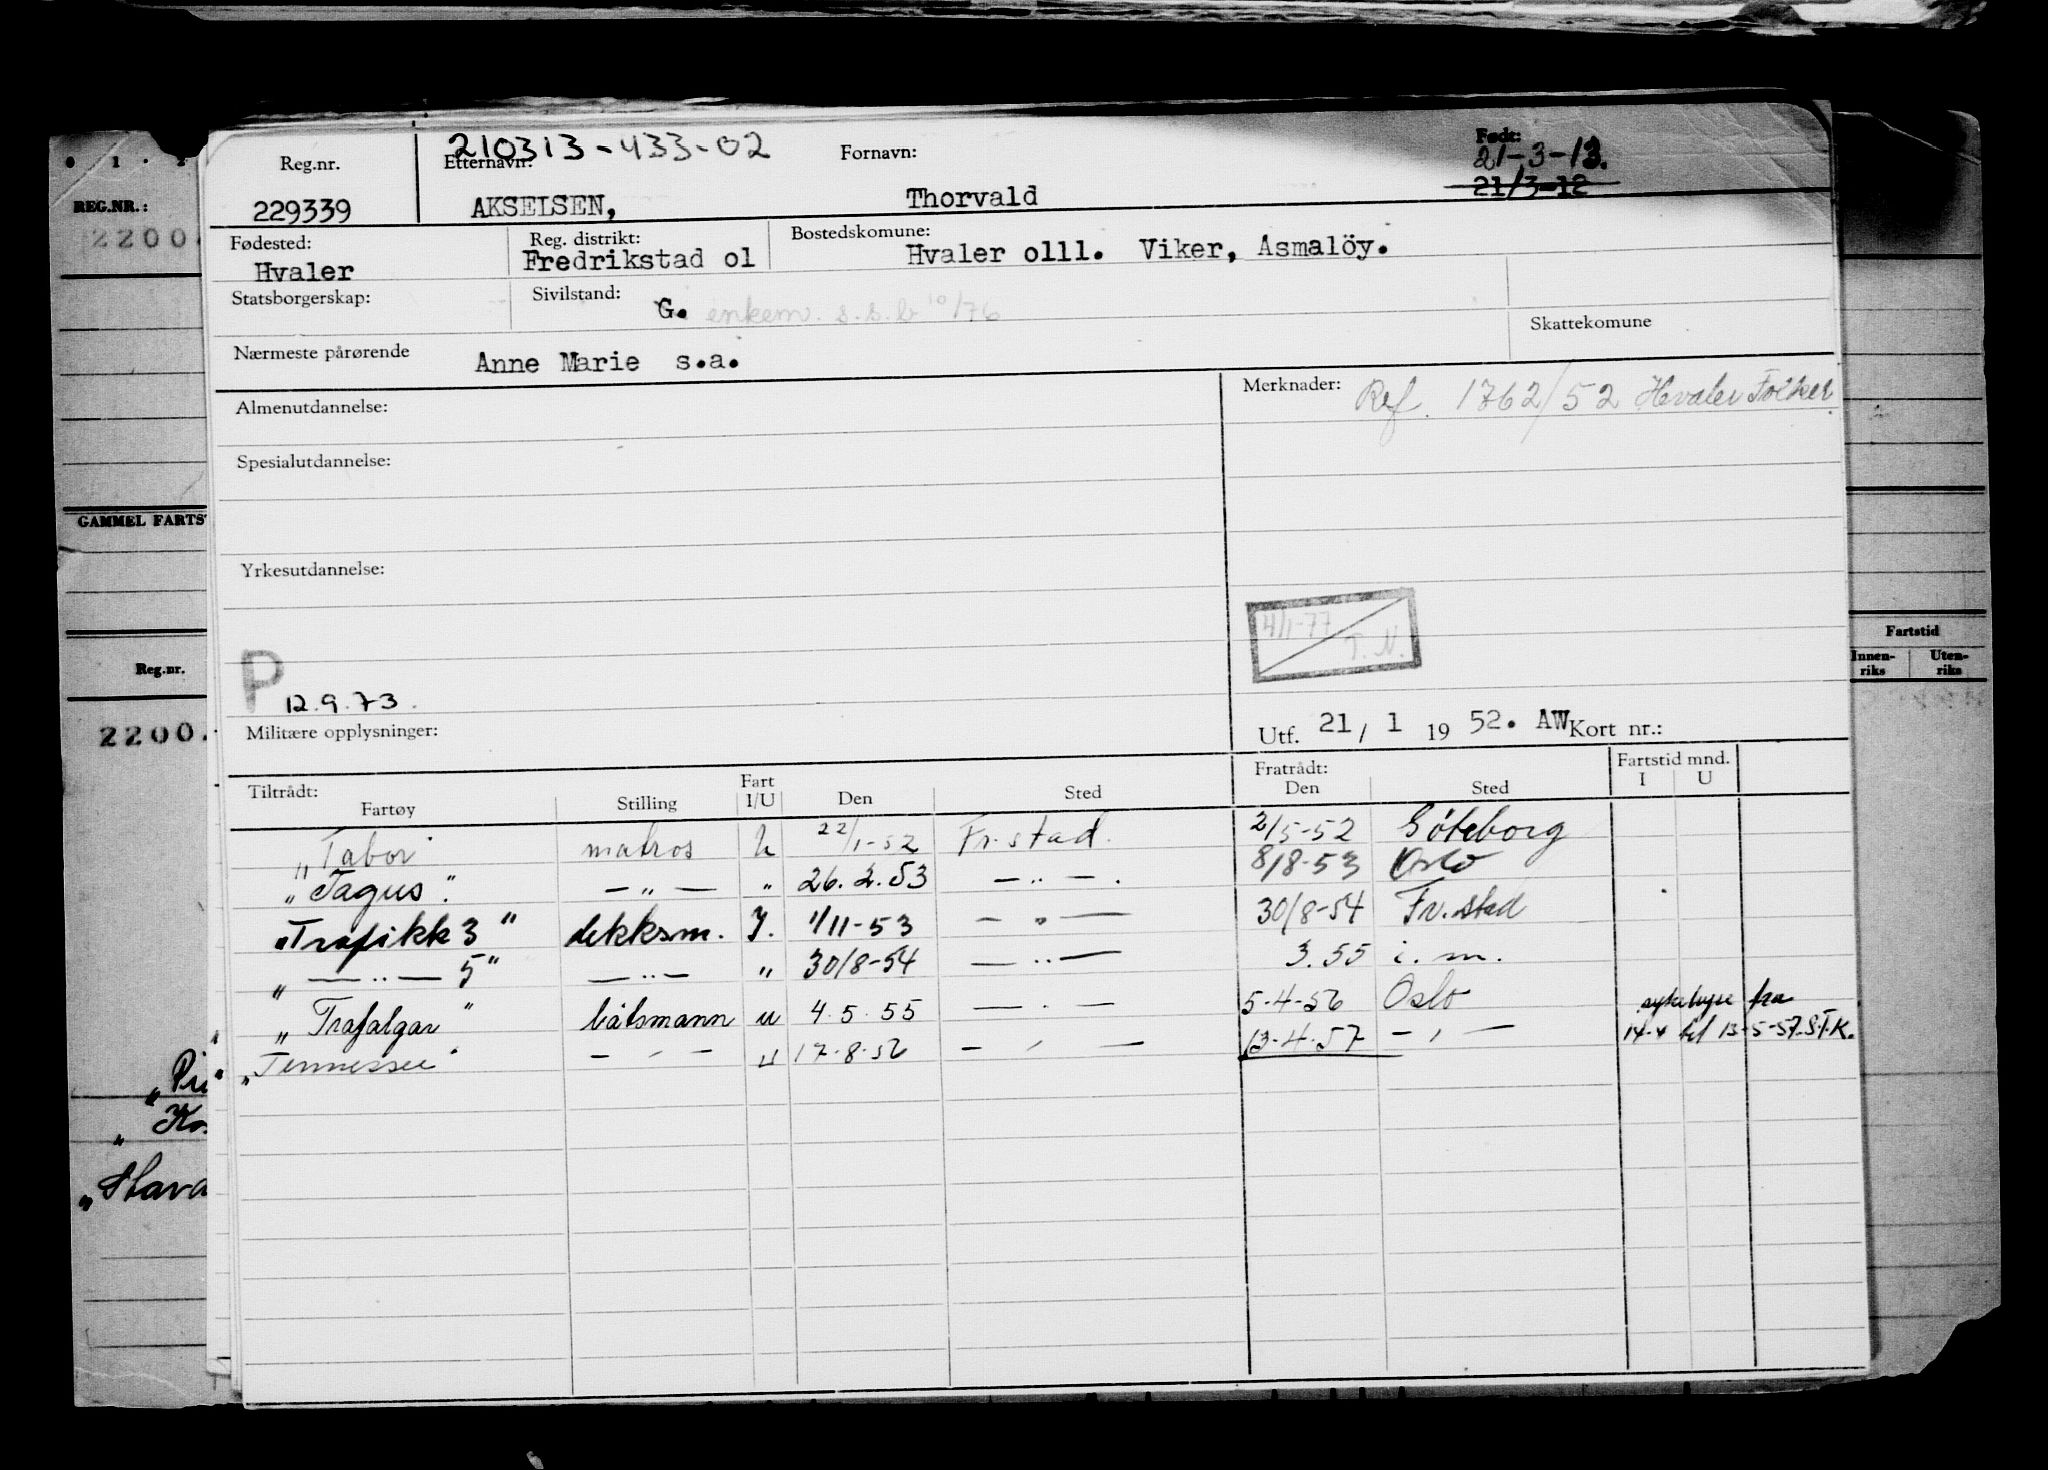 210313-433-02
Reg.nr. Etternavn: Fornavn: Født:
21-3-13.
229339 AKSELSEN, Thorvald 21/3-12
Fødested: Reg. distrikt: Bostedskomune:
Hvaler Fredrikstad ol Hvaler olll. Viker, Asmalöy.
Statsborgerskap: Sivilstand: G. enkem. s.s.b 10/76
Skattekomune
Nærmeste pårørende Anne Marie s.a.
Almenutdannelse: Merknader: Ref. 1762/52 Hvaler Folker
Spesialutdannelse:
Yrkesutdannelse:
4/1-77 T.N.
P 12.9.73.
Militære opplysninger: Utf. 21/ 1 19 52. AW Kort nr.:
Tiltrådt: Fart Fratrådt: Fartstid mnd.
Fartøy Stilling I/U Den Sted Den Sted I U
"Tabor" matros U 22/1-52 Fr.stad. 2/5-52 Göteborg
"Tagus". — " — " 26.2.53 — " — . 8/8-53 Oslo
"Trafikk 3" dekksm. I. 1/11-53 — " — 30/8-54 Fr.stad
" — " — 5" — " — " 30/8-54 — " — 3.55 i.m.
"Trafalgar" båtsmann u 4.5.55 — " — 5-4-56 Oslo sykehyre fra
"Tennessee" — " — u 17-8-56 — " — 13-4-57 — " — 14-4 til 13-5-57. S.T.K.
0 1 . 2
REG.NR.:
2200.
GAMMEL FARTS
Reg.nr.
2200.
"Pri
" Ko
"Hava
Fartstid
Innen-riks Uten-riks